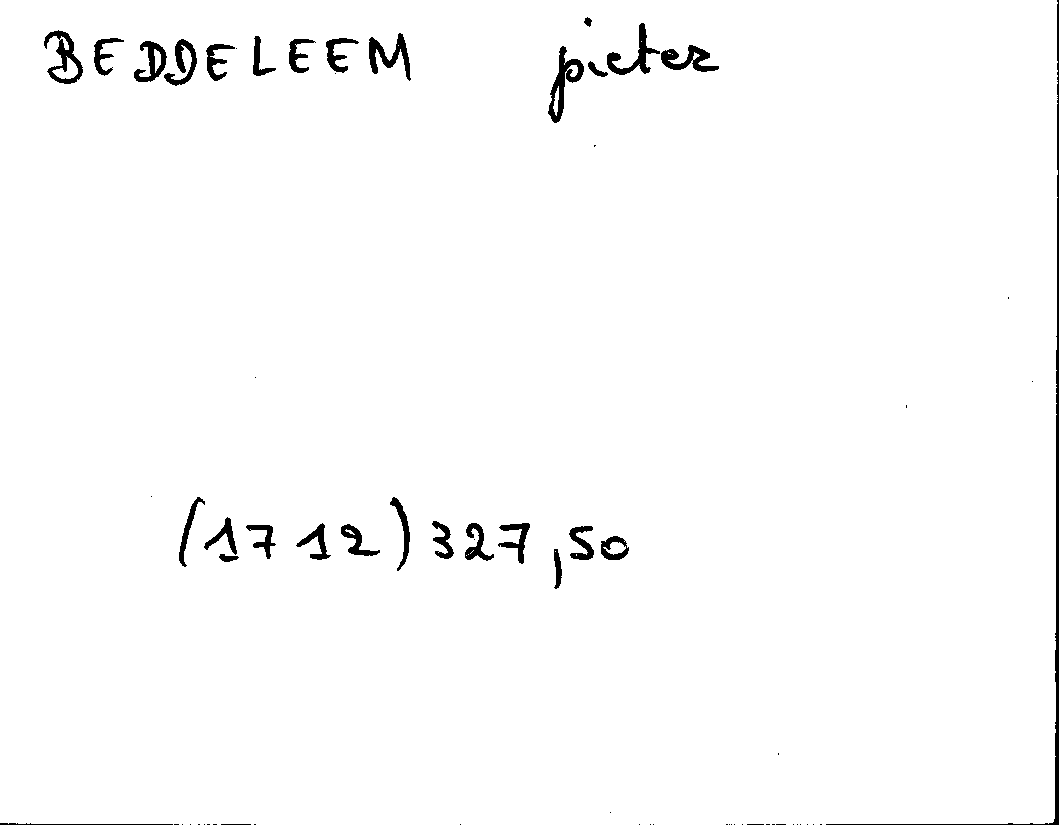 BEDDELEEM pieter
(1712) 327,50